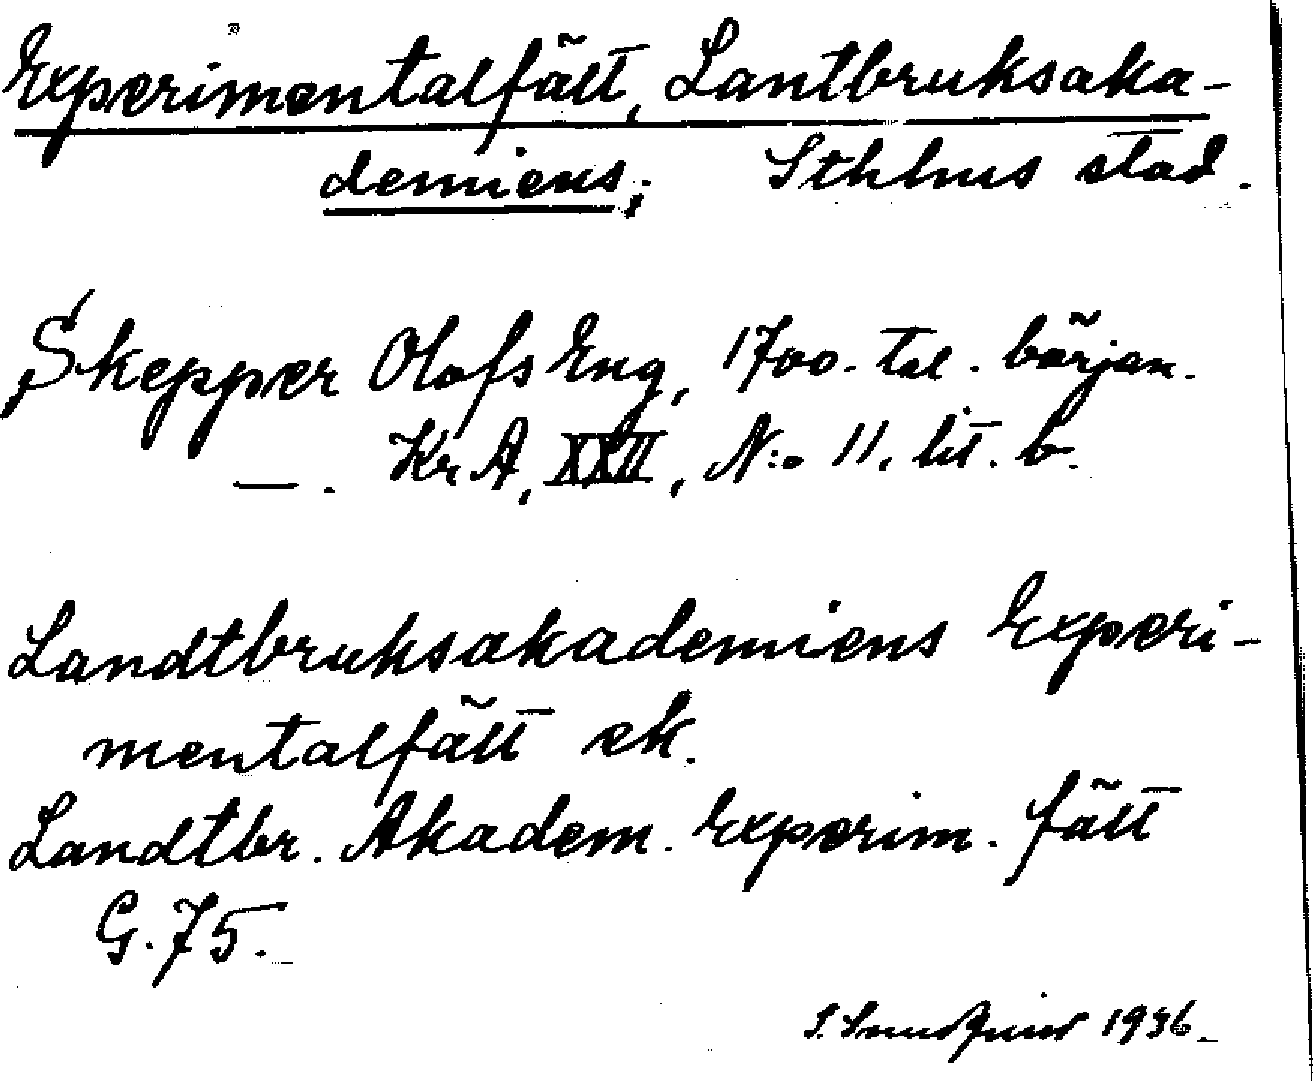 Experimentalfält, Lantbruksaka-
demiens; Sthlms stad.
Skepper Olofs Eng, 1700-tal. början.
—. KrA, XXII, N:o 11, lit. b.
Landtbruksakademiens Experi-
mentalfält ek.
Landtbr. Akadem. Experim. fält
G. 75.
S. 1936.